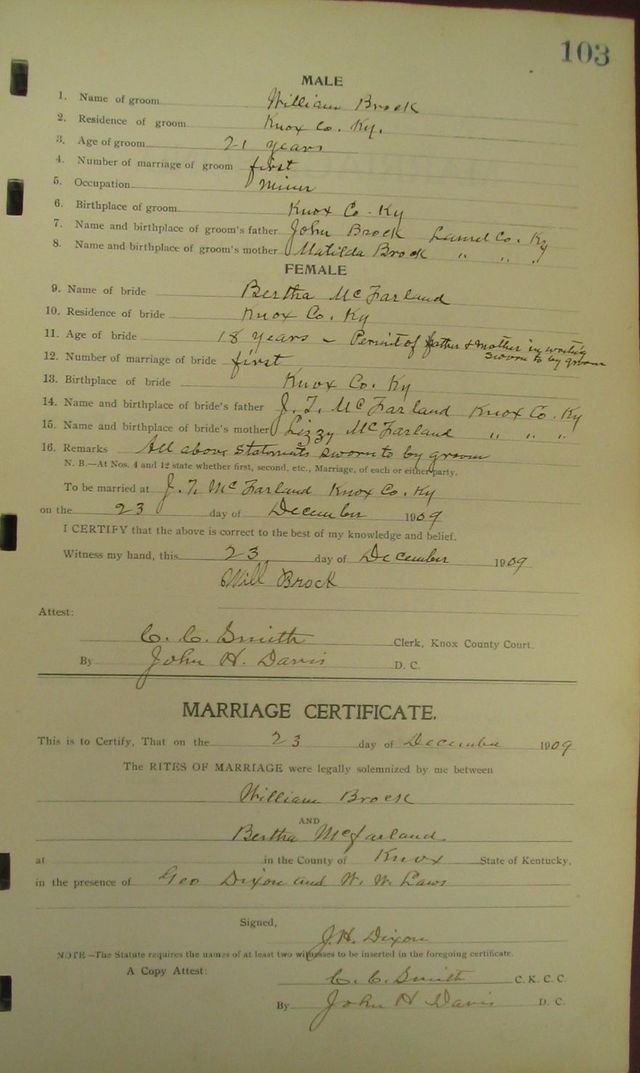 103
MALE
1. Name of groom William Brock
2. Residence of groom Knox Co. Ky.
3. Age of groom 21 years
4. Number of marriage of groom first
5. Occupation Miner
6. Birthplace of groom Knox Co. Ky
7. Name and birthplace of groom's father John Brock Laurel Co. Ky
8. Name and birthplace of groom's mother Matilda Brock " " "
FEMALE
9. Name of bride Bertha McFarland
10. Residence of bride Knox Co. Ky
11. Age of bride 18 years - Permit of father & mother in writing
sworn to by groom
12. Number of marriage of bride first
13. Birthplace of bride Knox Co. Ky
14. Name and birthplace of bride's father J. T. McFarland Knox Co. Ky
15. Name and birthplace of bride's mother Lizzy McFarland " " "
16. Remarks All above statements sworn to by groom
N. B.—At Nos. 4 and 12 state whether first, second, etc., Marriage, of each or either party.
To be married at J. T. McFarland Knox Co. Ky
on the 23 day of December 1909
I CERTIFY that the above is correct to the best of my knowledge and belief.
Witness my hand, this 23 day of December 1909
Will Brock
Attest:
C. C. Smith Clerk, Knox County Court.
By John H. Davis D. C.
MARRIAGE CERTIFICATE.
This is to Certify, That on the 23 day of December 1909
The RITES OF MARRIAGE were legally solemnized by me between
William Brock
AND
Bertha McFarland
at in the County of Knox State of Kentucky,
in the presence of Geo Dixon and W. W. Laws
Signed,
J. H. Dixon
NOTE—The Statute requires the names of at least two witnesses to be inserted in the foregoing certificate.
A Copy Attest:
C. C. Smith C. K. C. C.
By John H Davis D. C.